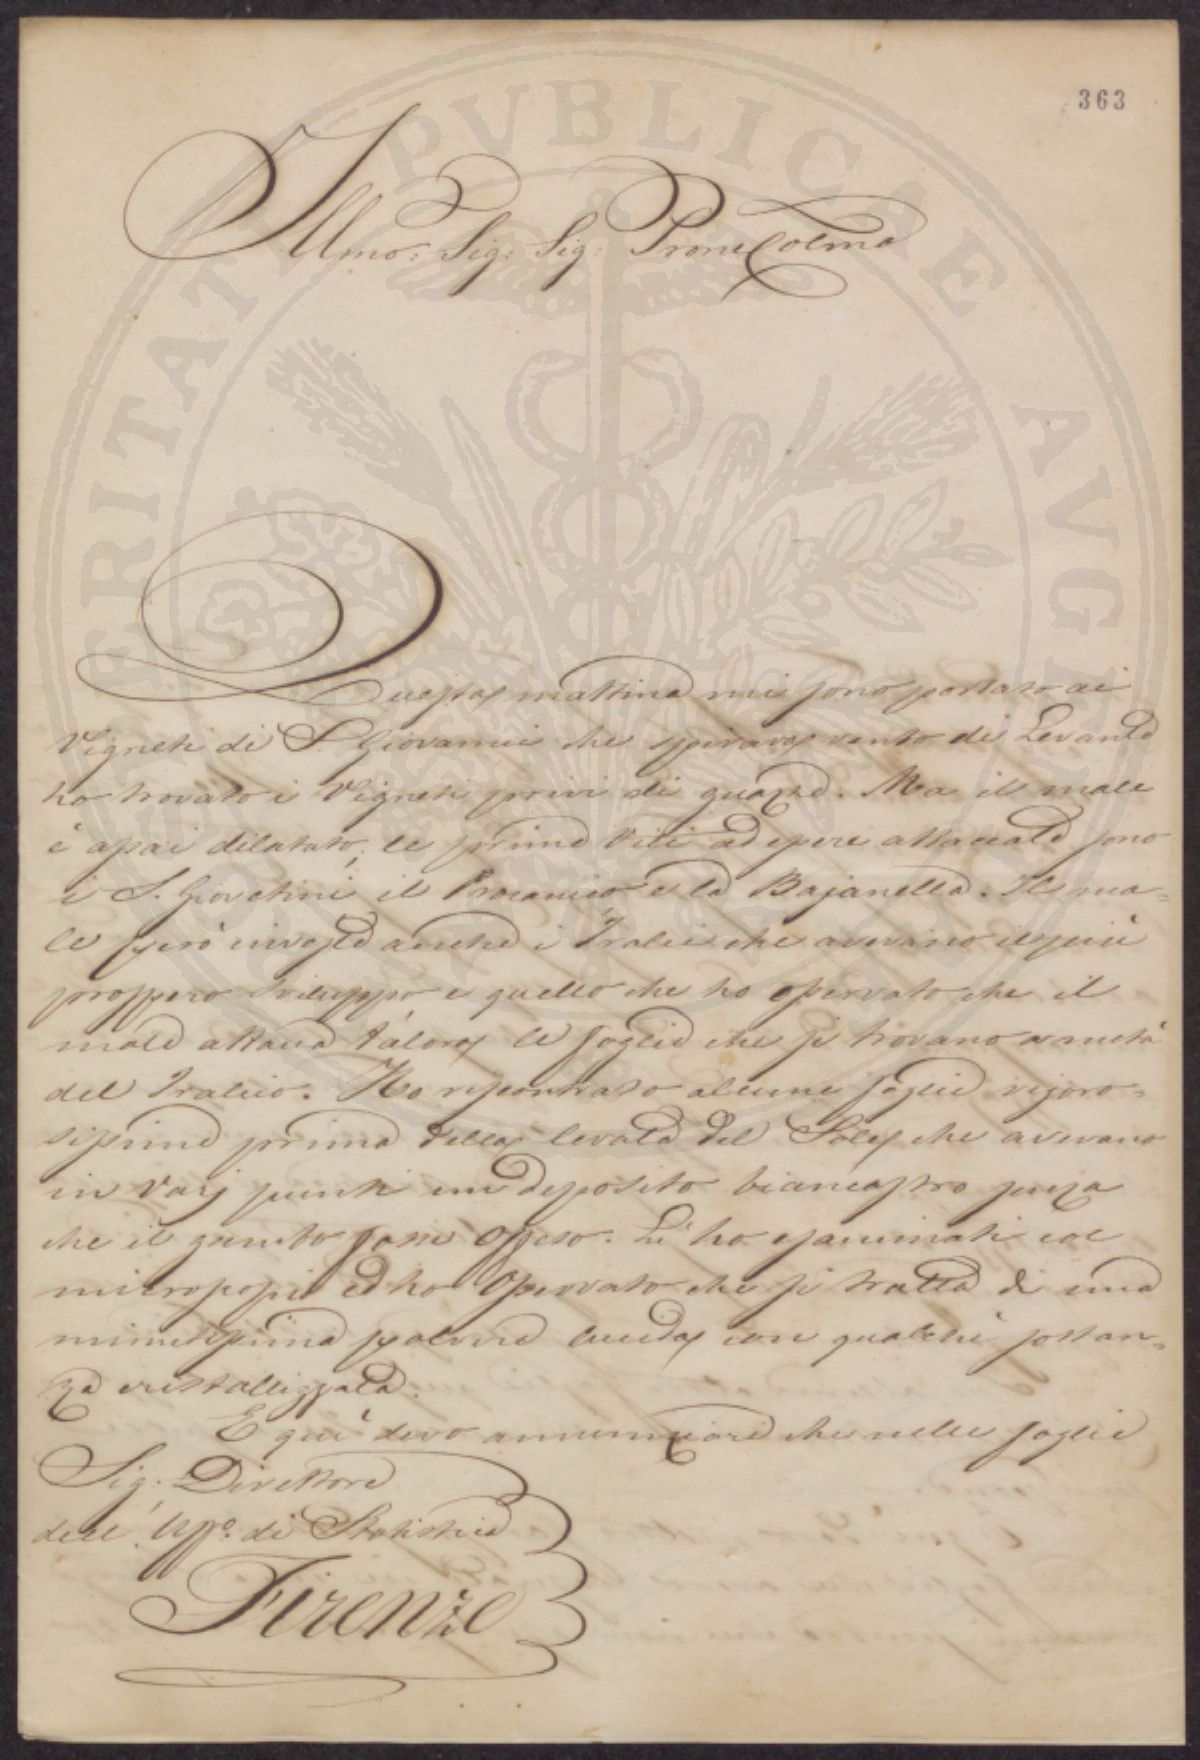 363
Illmo: Sig: Sig: Prone Colmo
Questa mattina mi sono portato ai
Vigneti di S. Giovanni che spirava vento di Levante
ho trovato i Vigneti privi di guazza. Ma il male
è assai dilatato; le prime Viti ad essere attaccate sono
i S. Giovetini, il Procanico e la Bajanella. Il ma=
le però investe anche i Tralci che avevano il più
prospero sviluppo e quello che ho osservato che il
male attacca talora le foglie che si trovano a metà
del Tralcio. Ho riscontrato alcune foglie vigoro=
sissime prima della levata del Sole, che avevano
in varj punti un deposito biancastro senza
che il gambo fosse offeso. Li ho esaminati col
microscopio ed ho osservato che si tratta di una
minutissima polvere lucida con qualche sostan=
za cristallizzata.
E quì devo annunziare che nelle foglie
Sig. Direttore
dell' Uffo. di Statistica
Firenze
PVBLICAE